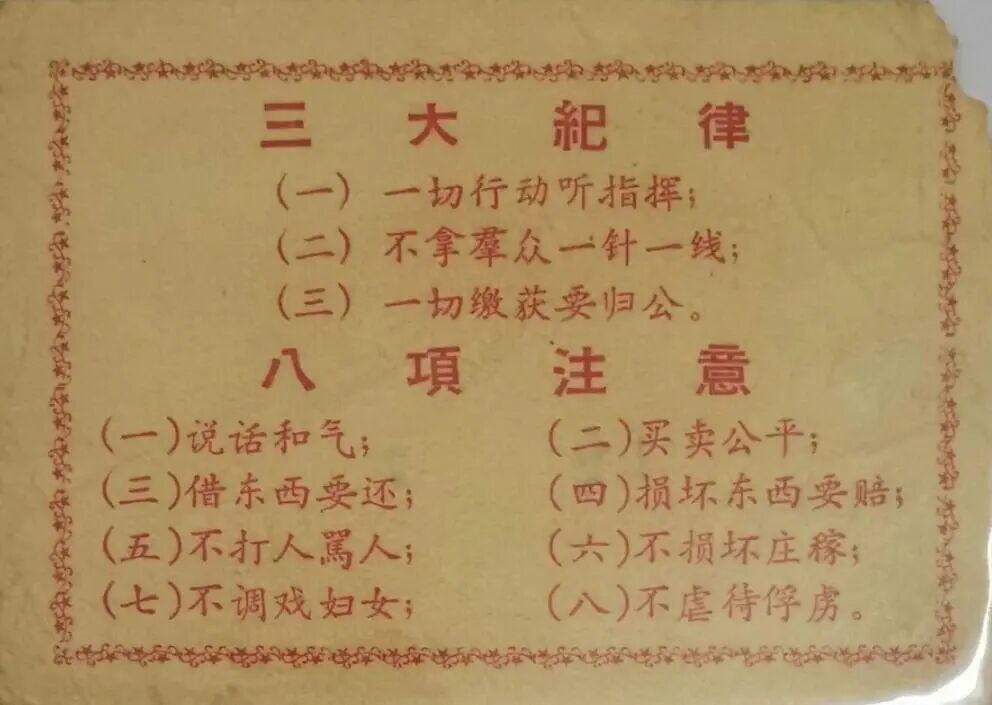 三大紀律
(一) 一切行动听指挥;
(二) 不拿羣众一针一线;
(三) 一切缴获要归公。
八項注意
(一)说话和气; (二)买卖公平;
(三)借东西要还; (四)损坏东西要赔;
(五)不打人駡人; (六)不损坏庄稼;
(七)不调戏妇女; (八)不虐待俘虏。